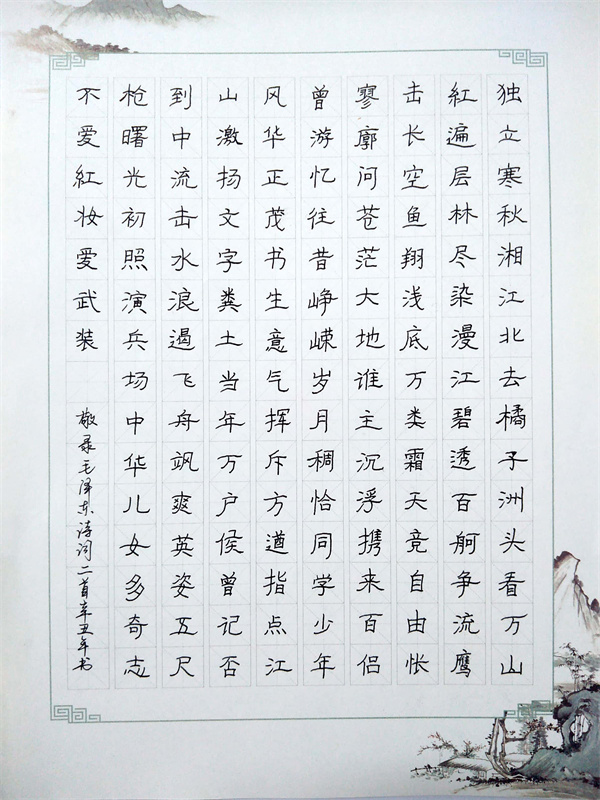 独立寒秋湘江北去橘子洲头看万山
紅遍层林尽染漫江碧透百舸争流鹰
击长空鱼翔浅底万类霜天竞自由怅
寥廓问苍茫大地谁主沉浮携来百侣
曾游忆往昔峥嵘岁月稠恰同学少年
风华正茂书生意气挥斥方遒指点江
山激扬文字粪土当年万户侯曾记否
到中流击水浪遏飞舟飒爽英姿五尺
枪曙光初照演兵场中华儿女多奇志
不爱紅妆爱武装
敬录毛泽东诗词二首辛丑年书